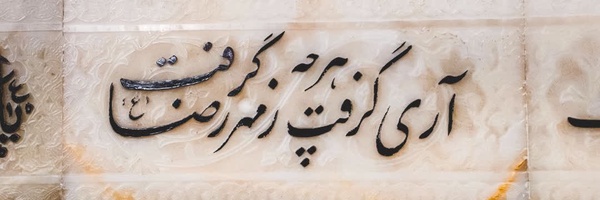 آری گرفت هرچه گرفت ز مهر رضا (ع)